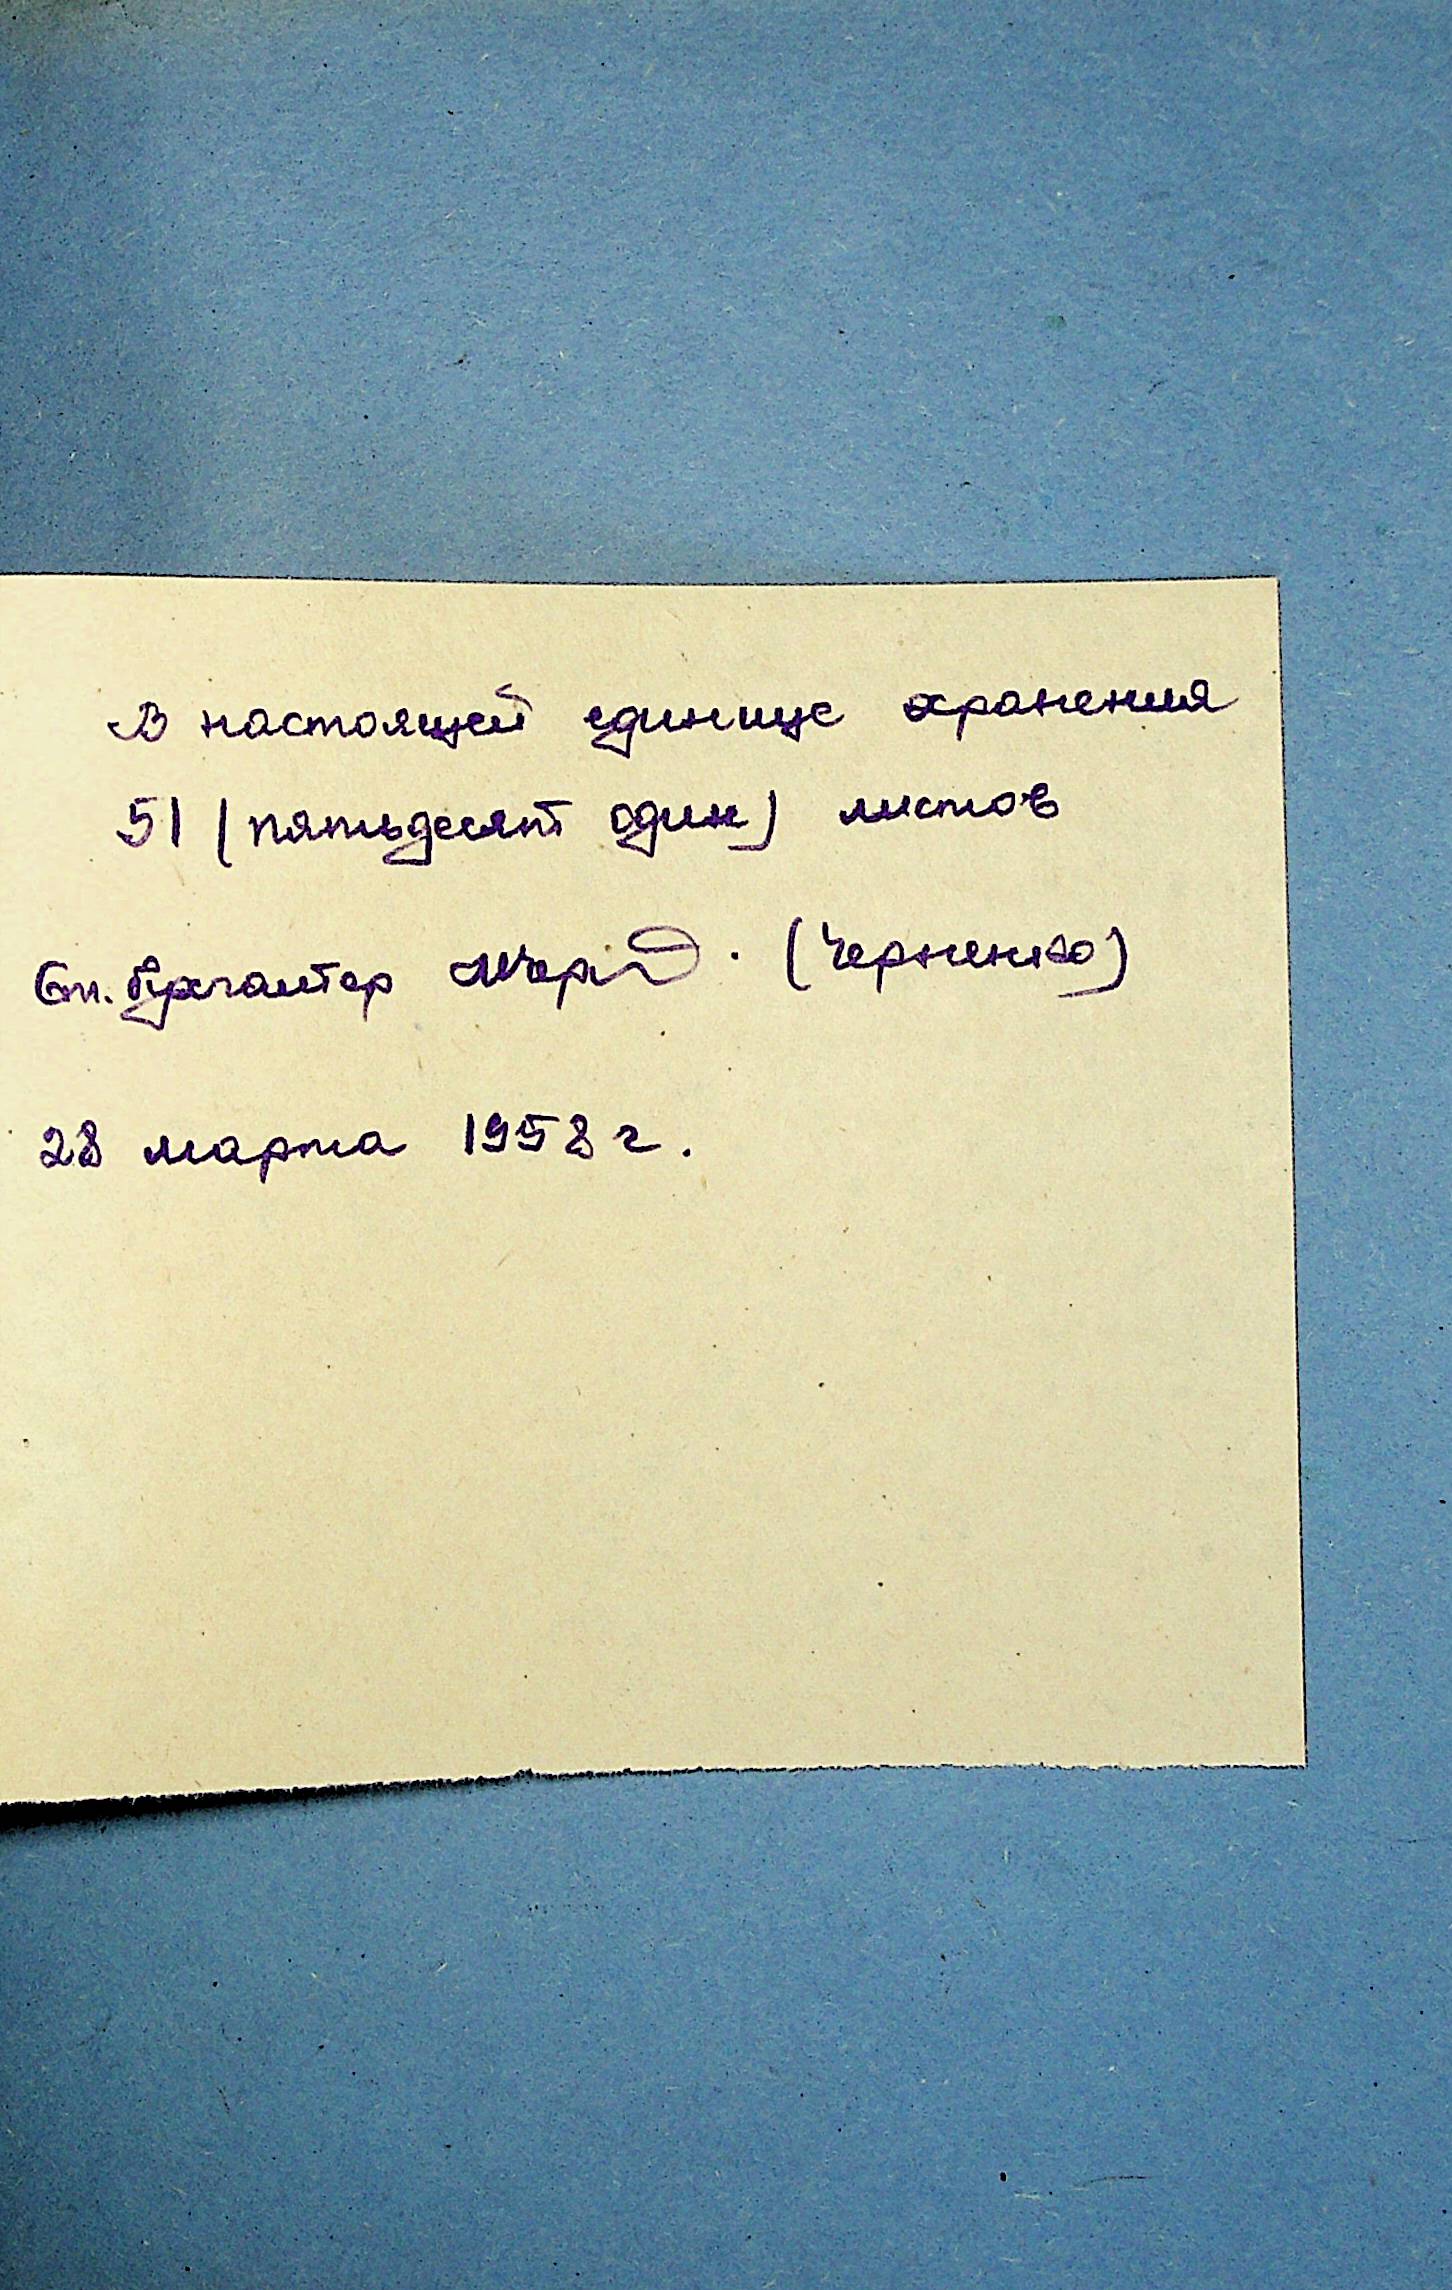 В настоящей единице хранения
51 (пятьдесят один) листов
Ст. бухгалтер (Черненко)
28 марта 1958 г.